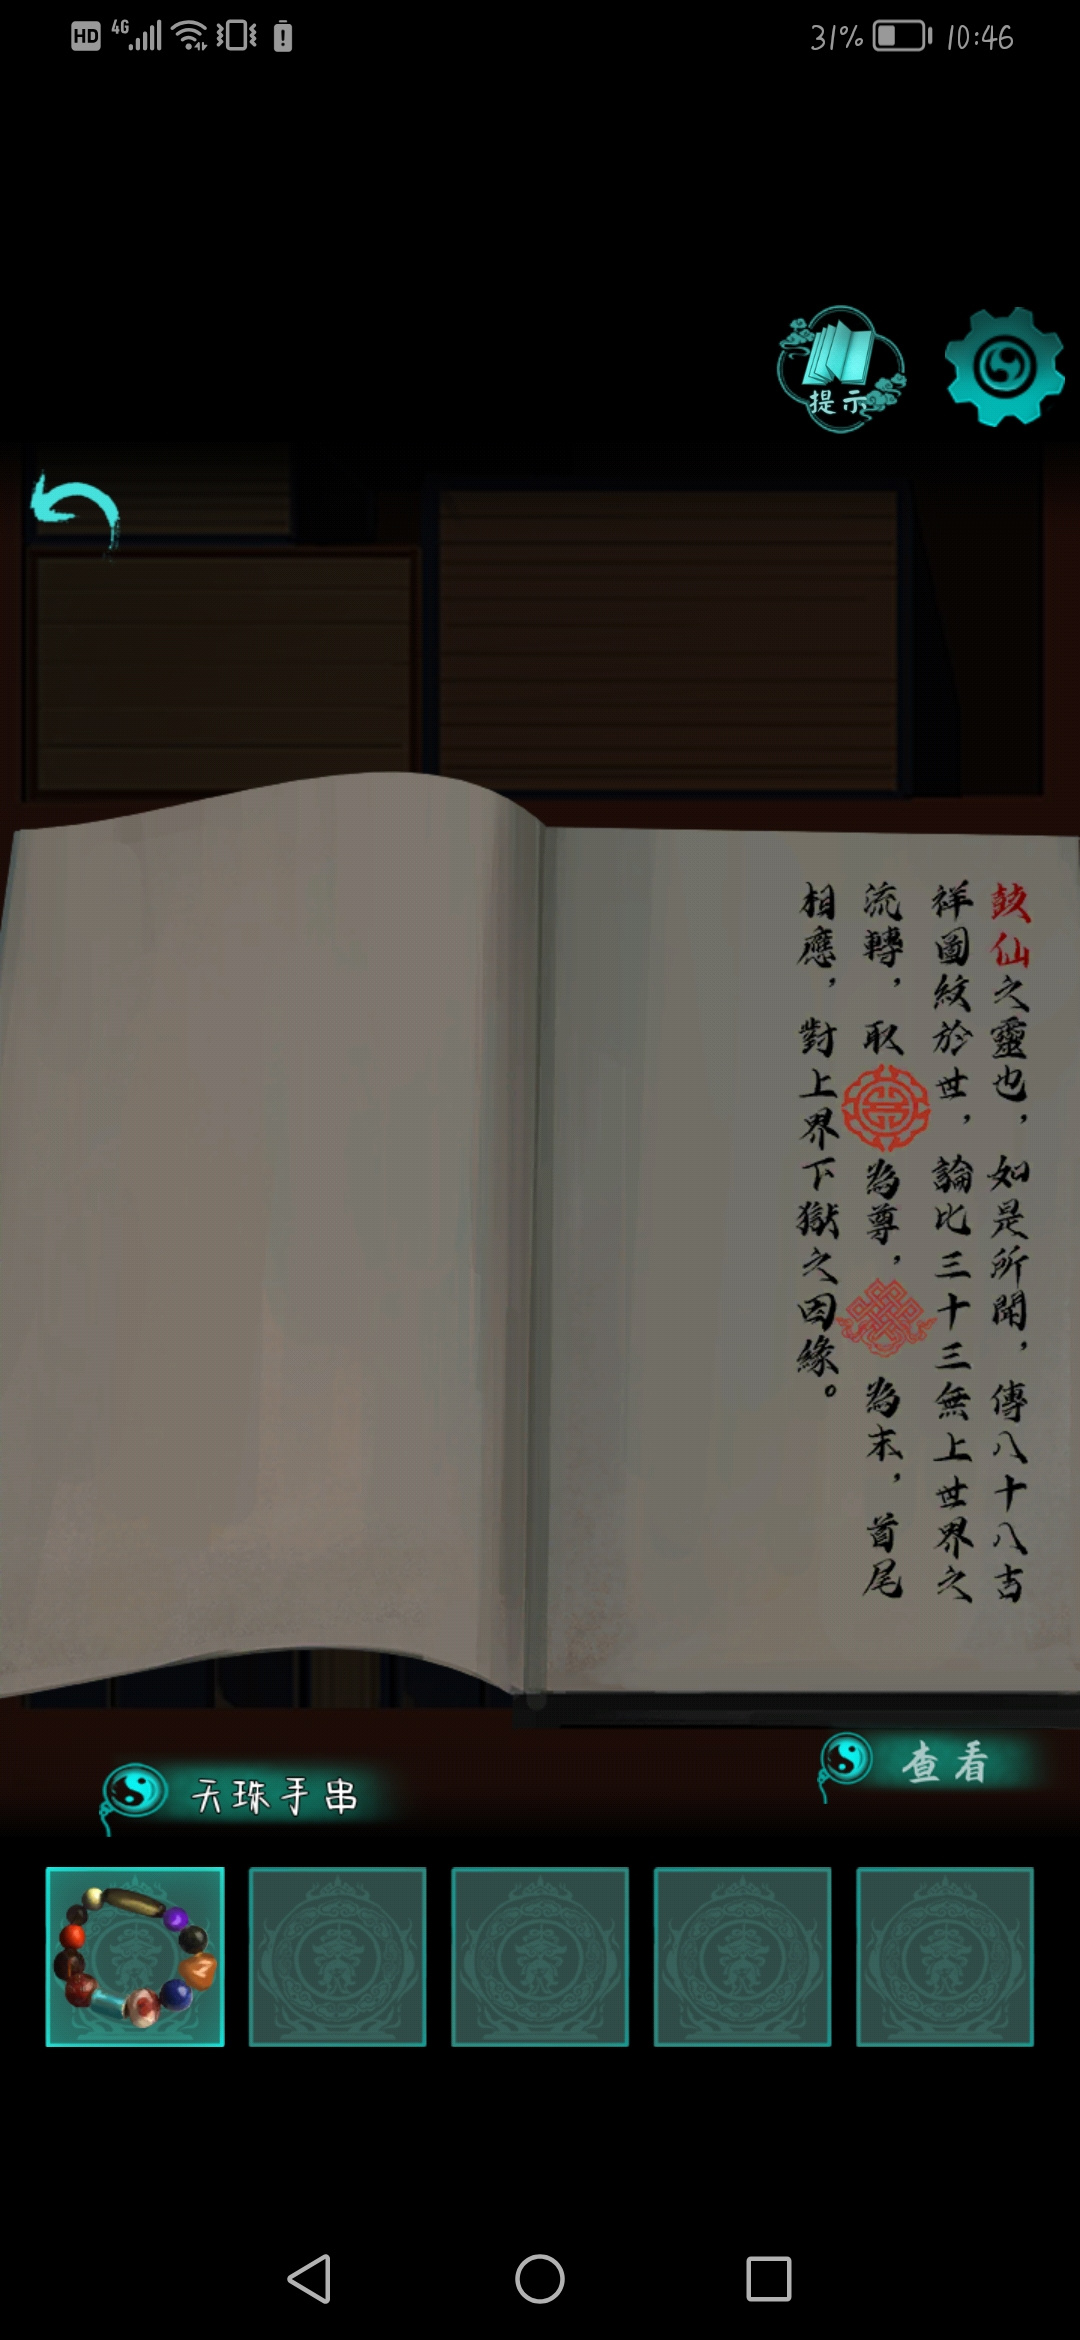 HD 4G 31% 10:46
提示
鼓仙之靈也，如是所聞，傳八十八吉
祥圖紋於世，論比三十三無上世界之
流轉，取為尊，為末，首尾
相應，對上界下獄之因緣。
查看
天珠手串